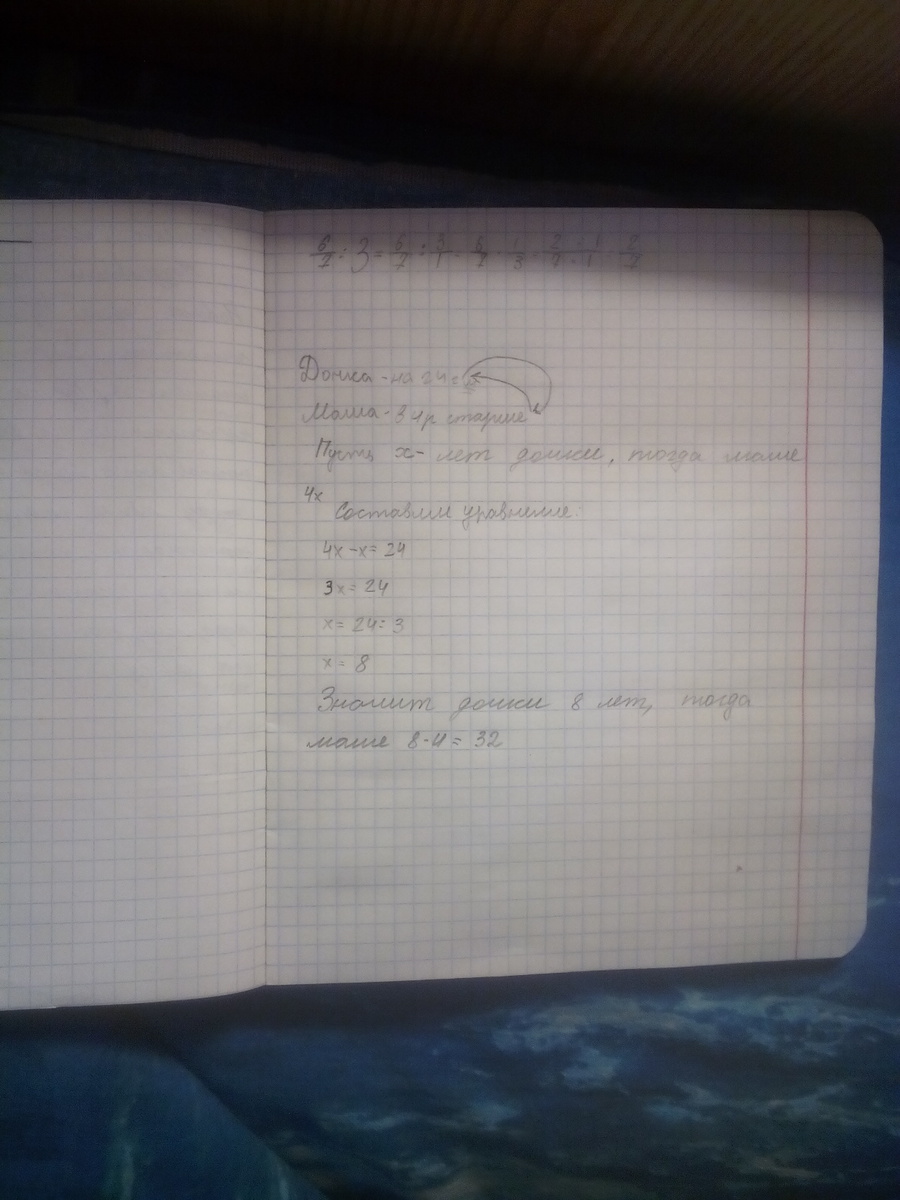 6/7 : 3 = 6/7 : 3/1 = 6/7 · 1/3 = 2/7 · 1/1 = 2/7
Дочка - на 24 г
Мама - в 4 р старше
Пусть x - лет дочки, тогда маме
4x
Составим уравнение:
4x - x = 24
3x = 24
x = 24 : 3
x = 8
Значит дочки 8 лет, тогда
маме 8 · 4 = 32